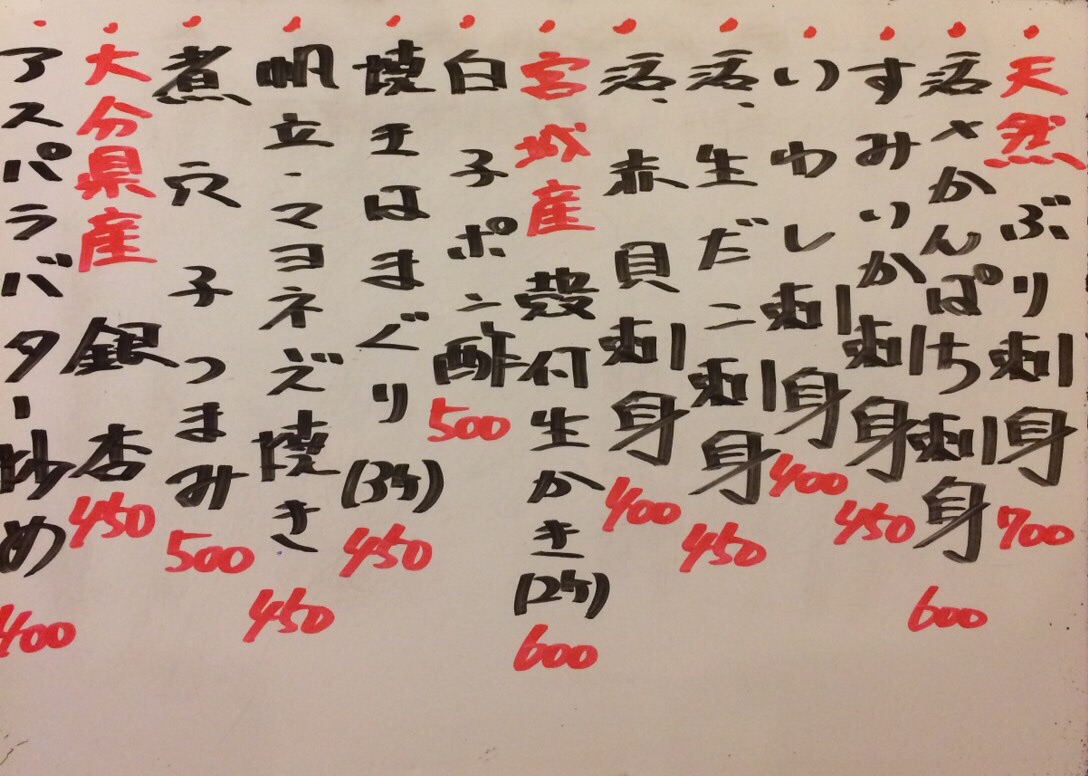 ・天然ぶり刺身 700
・活〆かんぱち刺身 600
・すみいか刺身 450
・いわし刺身 400
・活、生だこ刺身 450
・活、赤貝刺身 400
・宮城産 殻付生かき(2ケ) 600
・白子ポン酢 500
・焼きはまぐり(3ケ) 450
・帆立・マヨネーズ焼き 450
・煮穴子つまみ 500
・大分県産 銀杏 450
・アスパラバター炒め 400